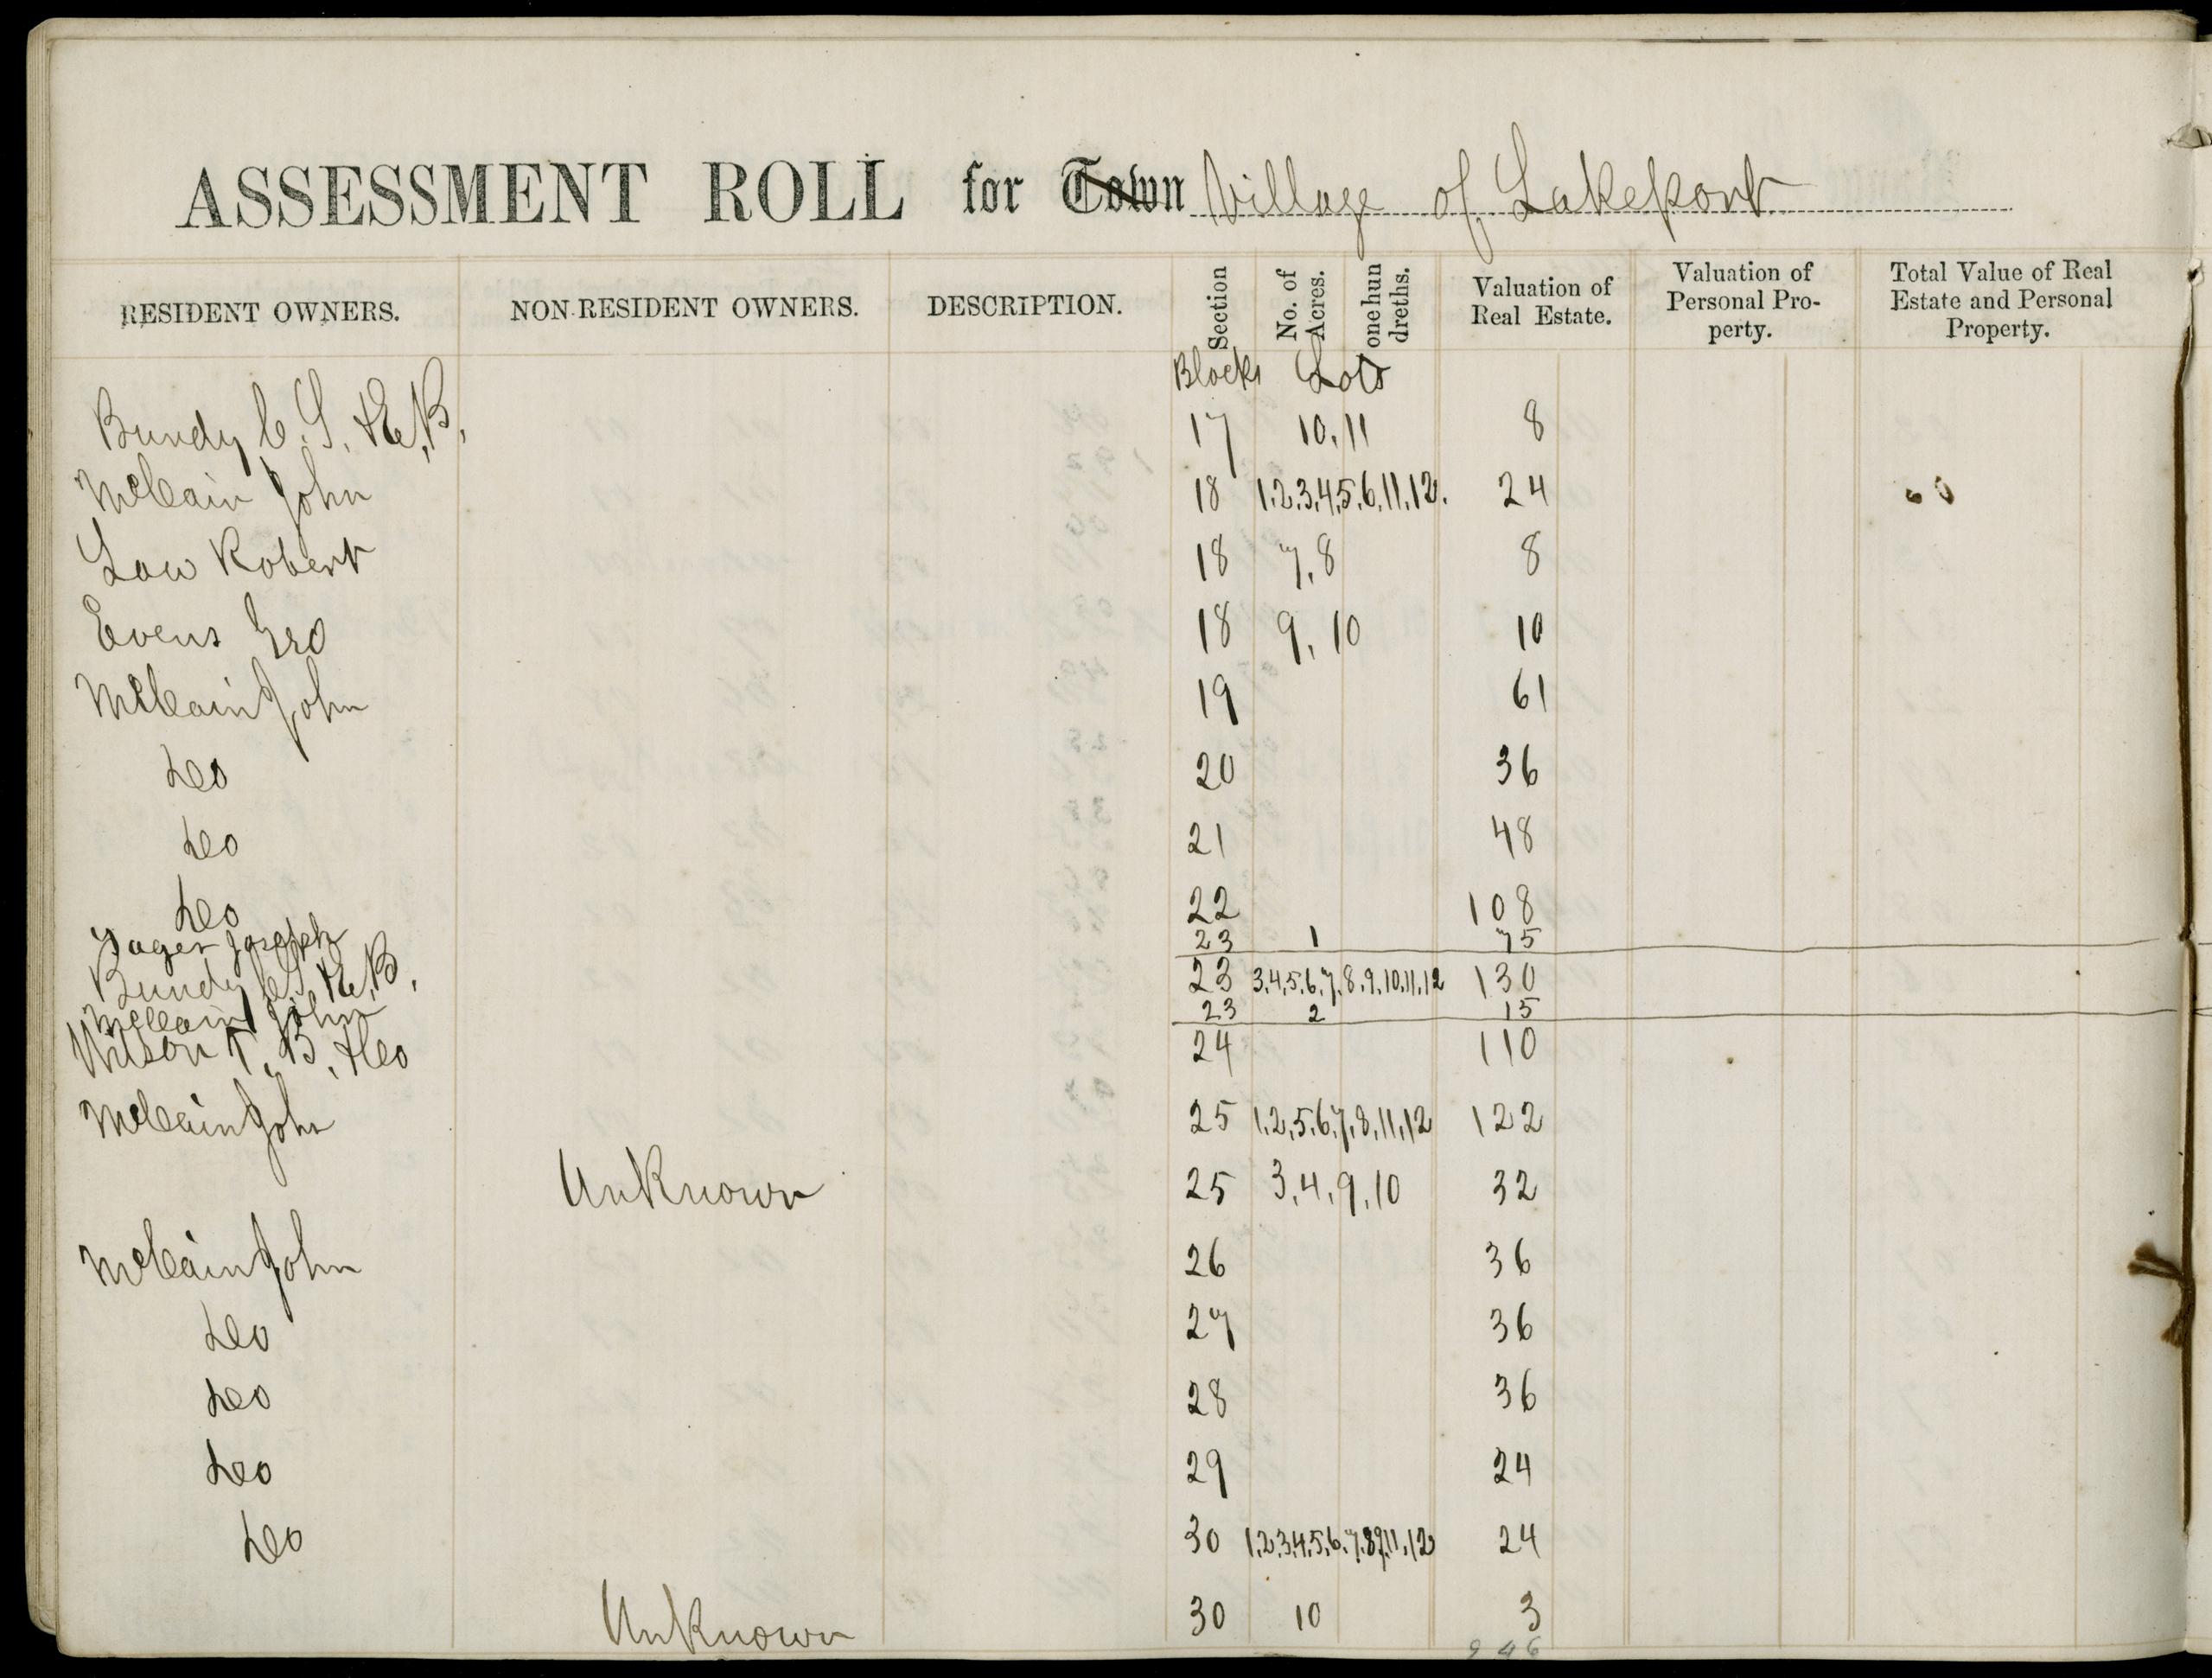 ASSESSMENT ROLL for Town Village of Lakeport
RESIDENT OWNERS. NON-RESIDENT OWNERS. DESCRIPTION. Section No. of Acres. one hun dreths. Valuation of Real Estate. Valuation of Personal Pro- perty. Total Value of Real Estate and Personal Property.
Blocks Lots
Bundy C. S. & E. B. 17 10, 11 8
McCain John 18 1,2,3,4,5,6,11,12. 24
Low Robert 18 7, 8 8
Evens Geo 18 9, 10 10
McCain John 19 61
Do 20 36
Do 21 48
Do 22 108
Yager Joseph 23 1 75
Bundy C. S. & E. B. 23 3,4,5,6,7,8,9,10,11,12 130
McCain John 23 2 15
Wilson T. B. & Co 24 110
McCain John 25 1,2,5,6,7,8,11,12 122
Unknown 25 3,4,9,10 32
McCain John 26 36
Do 27 36
Do 28 36
Do 29 24
Do 30 1,2,3,4,5,6,7,8,9,11,12 24
Unknown 30 10 3
946